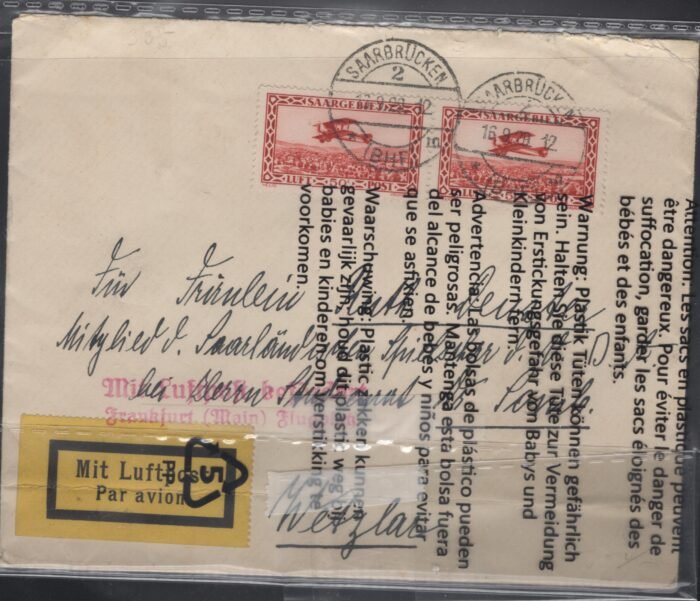 335
SAARBRÜCKEN
2
12
(BHF)
m
SAARBRÜCKEN
16.9.29. 12
SAARGEBIET
LUFT 50 c. POST
SAARGEBIET
Für Fräulein
Mitglied d. Saarländische
bei Herrn
Wetzlar
Mit Luftpost befördert
Frankfurt (Main) Flughafen
Mit Luftpost
Par avion
5
Attention: Les sacs en plastique peuvent
être dangereux. Pour éviter le danger de
suffocation, garder les sacs éloignés des
bébés et des enfants.
Warnung: Plastik Tüten können gefährlich
sein. Halten Sie diese Tüte zur Vermeidung
von Erstickungsgefahr von Babys und
Kleinkindern fern.
Advertencia: Las bolsas de plástico pueden
ser peligrosas. Mantenga esta bolsa fuera
del alcance de bebés y niños para evitar
que se asfixien.
Waarschuwing: Plastic zakken kunnen
gevaarlijk zijn, houd dit plastic weg bij
babies en kinderen om verstikking te
voorkomen.